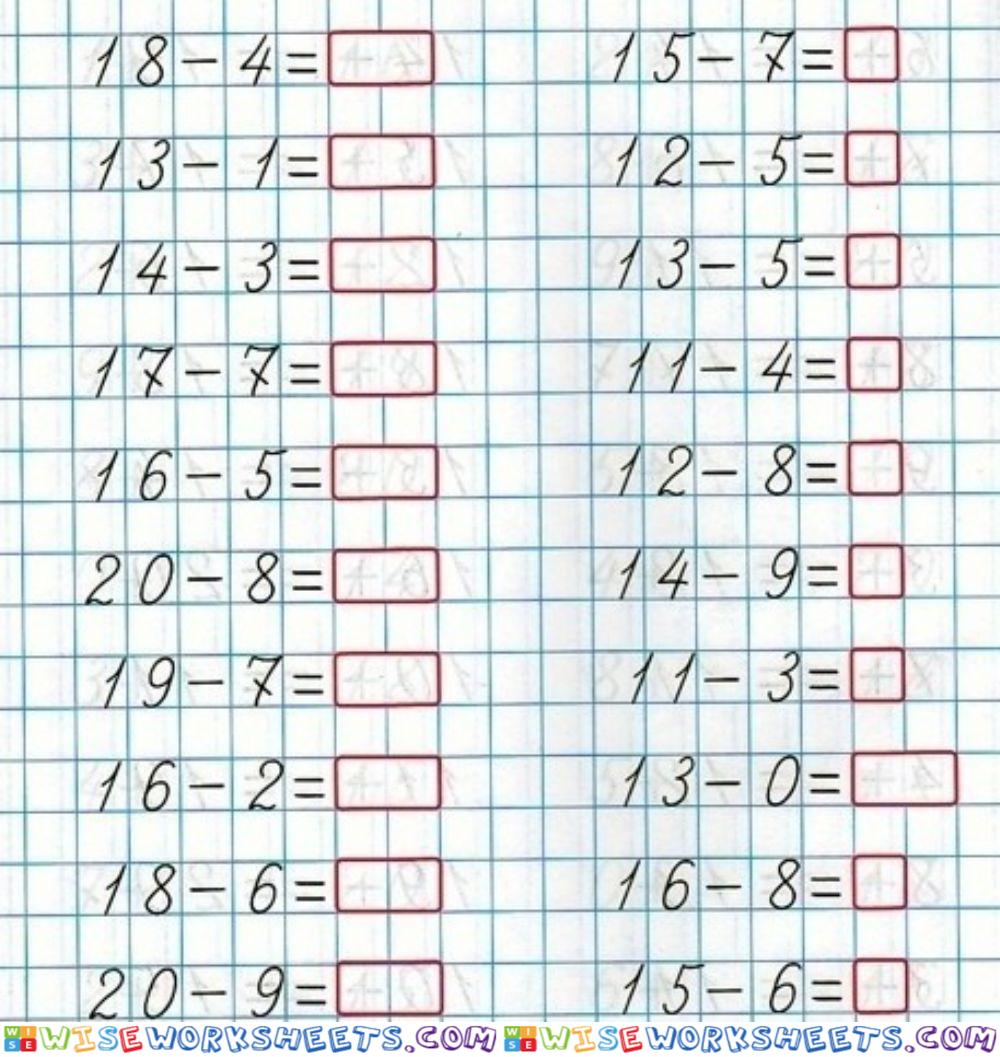 18-4=
15-7=
13-1=
12-5=
14-3=
13-5=
17-7=
11-4=
16-5=
12-8=
20-8=
14-9=
19-7=
11-3=
16-2=
13-0=
18-6=
16-8=
20-9=
15-6=
WISEWORKSHEETS.COM WISEWORKSHEETS.COM